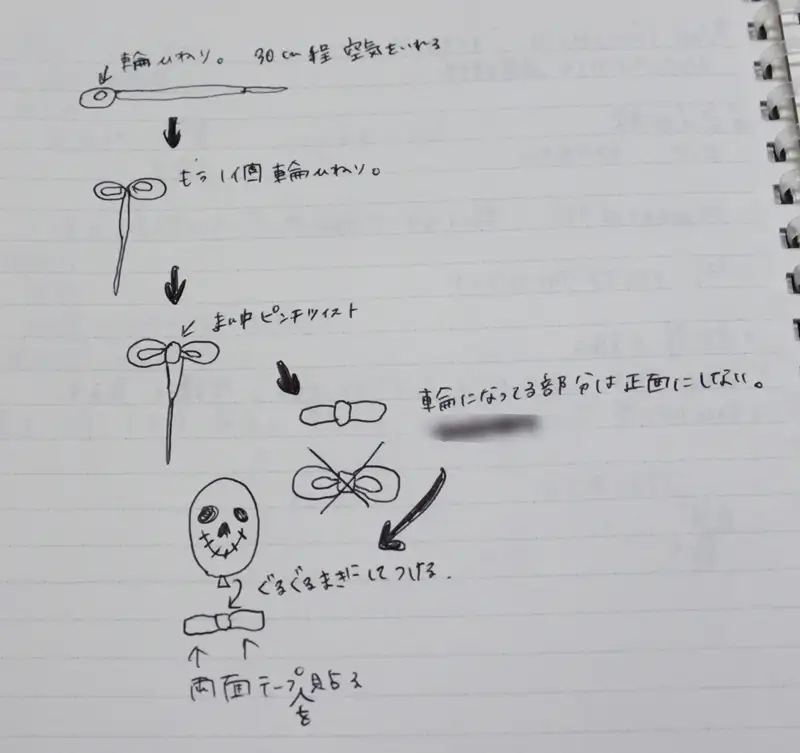 輪ひねり。 30cm程 空気をいれる
もう1個 輪ひねり。
まん中ピンチツイスト
輪になってる部分は正面にしない。
ぐるぐるまきにしてつける.
両面テープを貼る